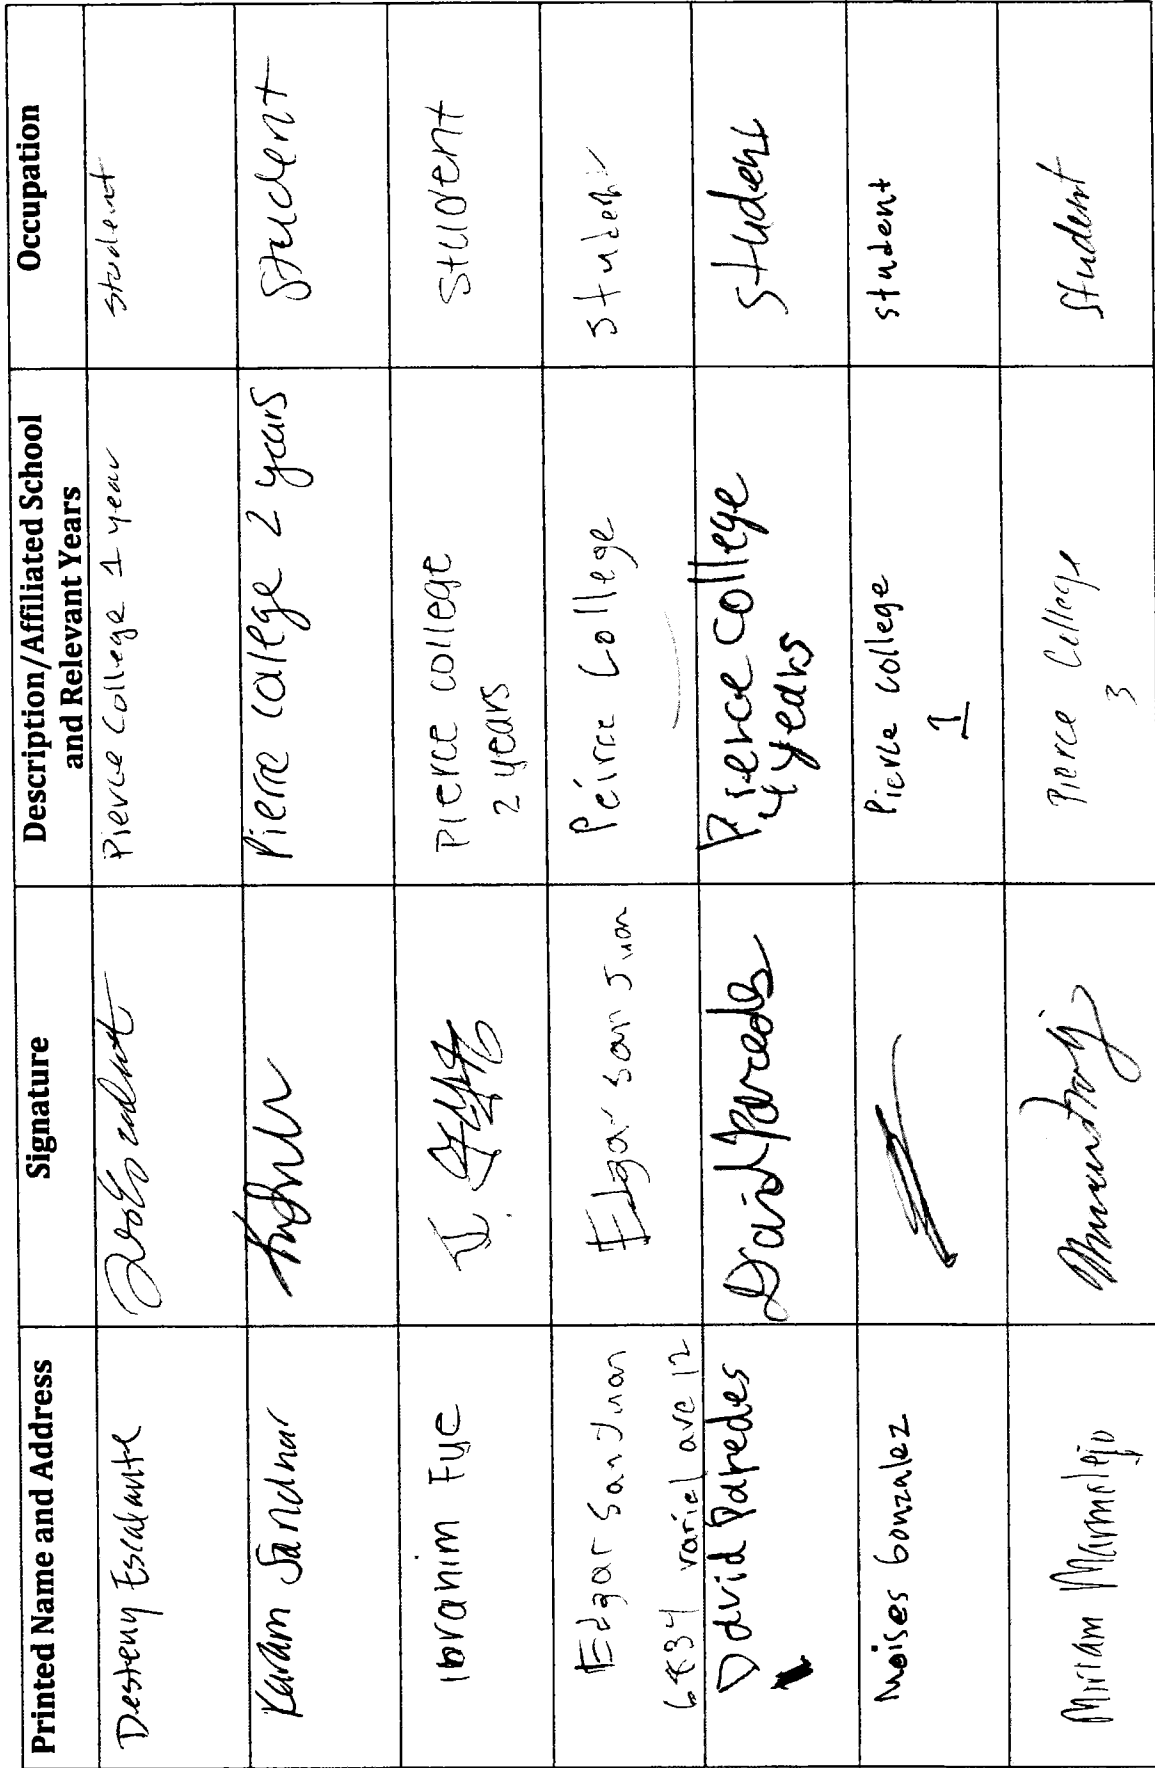 Printed Name and Address
Signature
Description/Affiliated School
and Relevant Years
Occupation
Desteny Escalante
Pierce College 1 year
student
Karam Sandhar
Pierre college 2 years
Student
Ibrahim Fye
Pierce college
2 years
student
Edgar San Juan
variel ave 12
Edgar San Juan
Peirce College
student
David Paredes
David Paredes
Pierce college
4 years
student
Moises Gonzalez
Pierce college
1
student
Miriam Marmolejo
Pierce College
3
Student